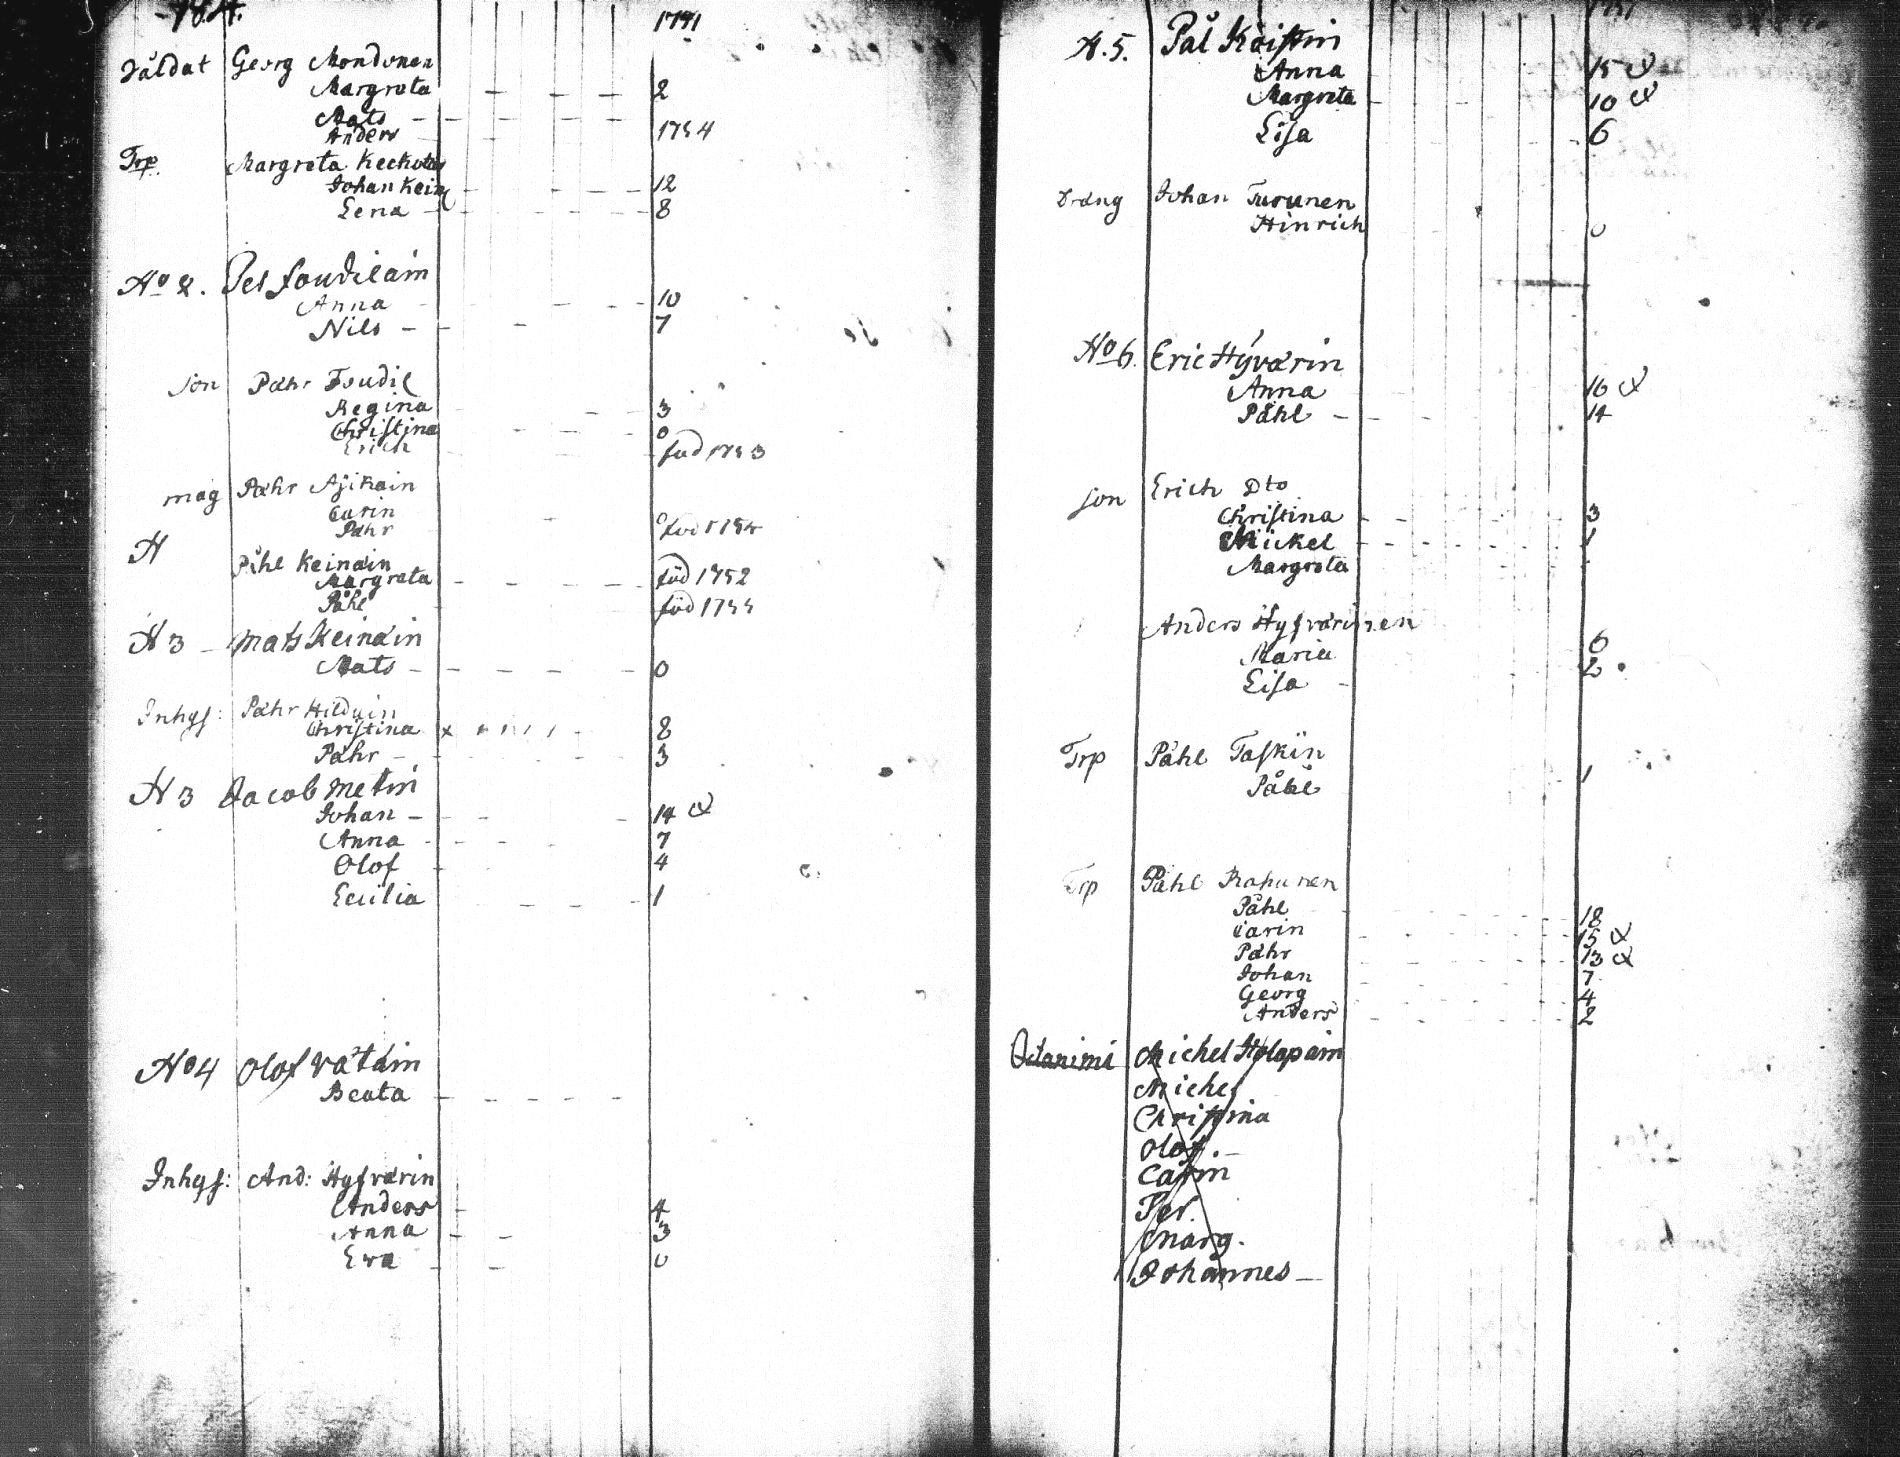 1751
Såldat Georg Mondonen
Margreta 2
Mats
Anders 1754
Trp. Margreta Keckolai
Johan Kein 12
Lena 8
No 2. Pet Soudilain
Anna 10
Nils 7
Son Pæhr Soudil
Regina 3
Christina 0
Erich föd 1753
mag Pæhr Ajikain
Carin 0
Pæhr föd 1754
N
Påhl Keinäin
Margreta föd 1752
Påhl föd 1755
N 3 Mats Keinäin
Mats 0
Inhys: Pæhr Hilduin
Christina 8
Pæhr 3
N 3 Jacob Metin
Johan 14
Anna 7
Olof 4
Ecilia 1
No 4 Olof Vätäin
Beata
Inhys: And: Hyfværin
Anders 4
Anna 3
Eva 0
N. 5. Pål Köistin
Anna 15
Margreta 10
Lisa 6
Dræng Johan Turunen
Hinrich 0
No 6. Eric Hÿværin
Anna 16
Påhl 14
Son Erich Dto
Christina 3
Mickel 1
Margreta
Anders Hyfværinen
Maria 6
Lisa 2
Trp Påhl Taskin
Påhl 1
Trp Påhl Rahunen
Påhl 18
Carin 15
Pæhr 13
Johan 7
Georg 4
Anders 2
Michel Holopain
Michel
Christina
Olof
Carin
Per.
Marg.
Johannes